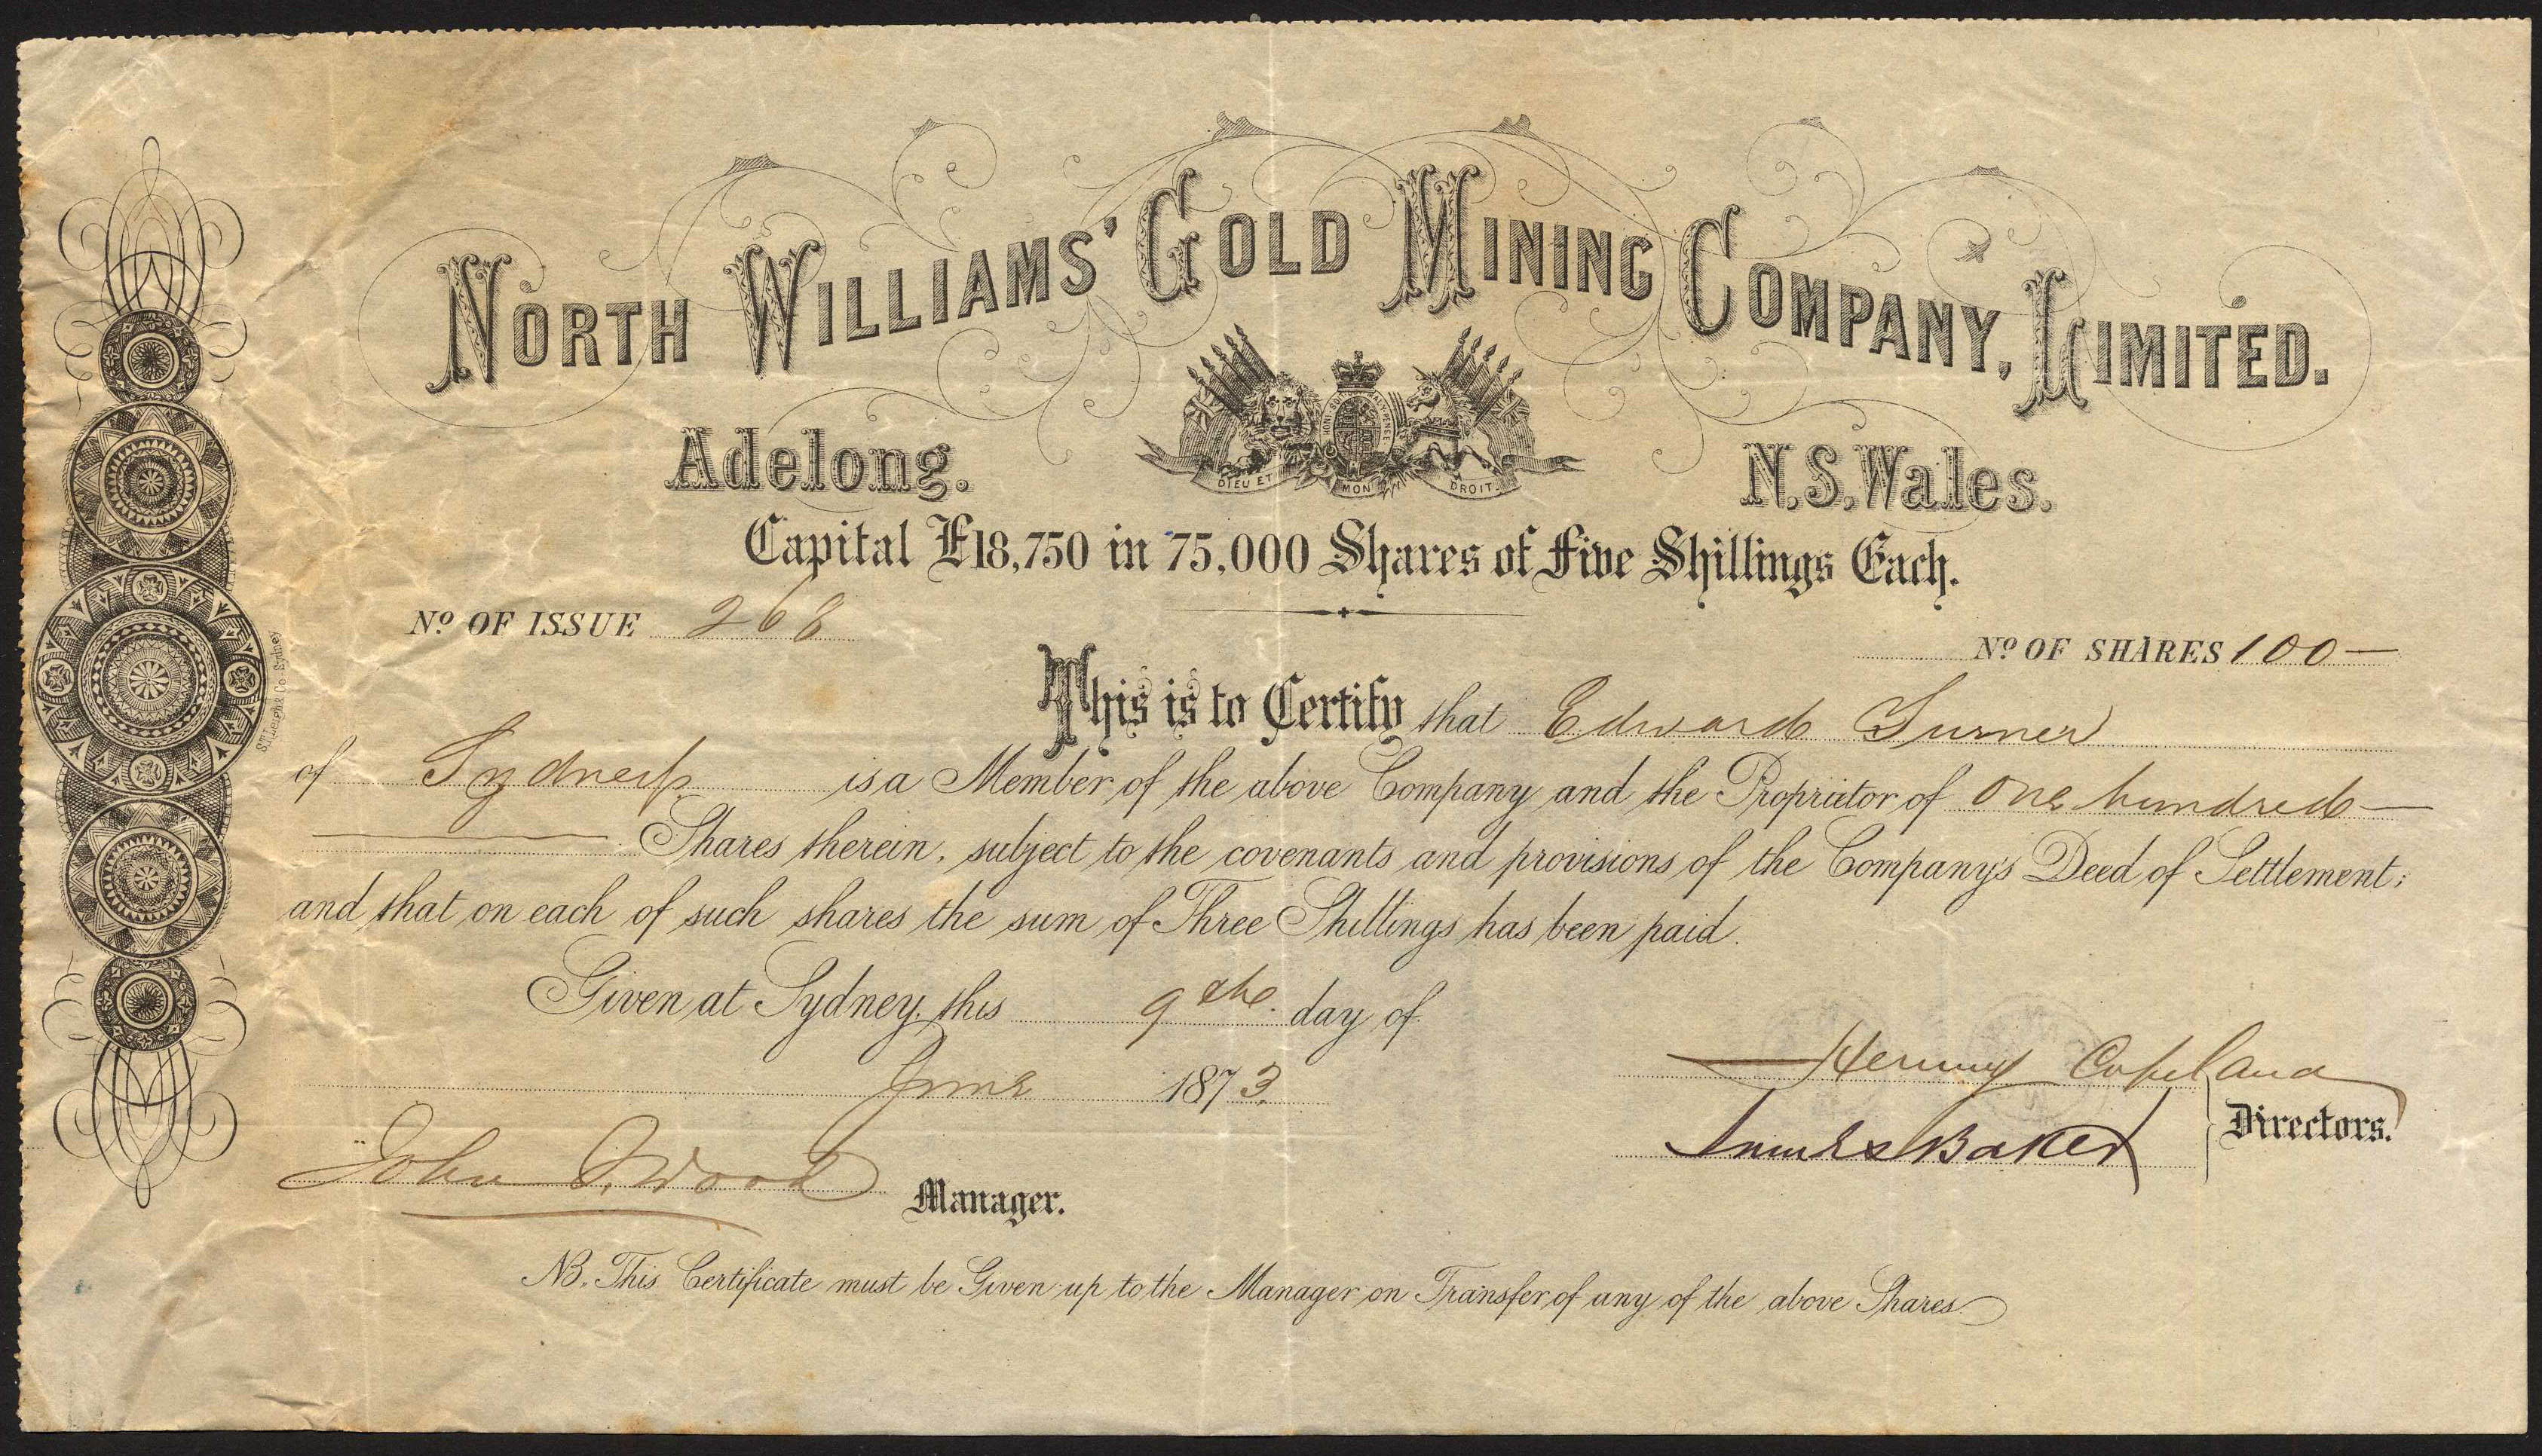 NORTH WILLIAMS' GOLD MINING COMPANY, LIMITED.
HONI SOIT QUI MAL Y PENSE
DIEU ET MON DROIT
Adelong. N.S.Wales.
Capital £18,750 in 75,000 Shares of Five Shillings Each.
Nº OF ISSUE 268
Nº OF SHARES 100—
S.T. Leigh & Co. Sydney
This is to Certify that Edward Turner
of Sydney is a Member of the above Company and the Proprietor of One hundred—
Shares therein, subject to the covenants and provisions of the Company's Deed of Settlement;
and that on each of such shares the sum of Three Shillings has been paid.
Given at Sydney, this 9th day of
June 1873.
Henry Copeland
James Baker
Directors.
John Wood
Manager.
NB. This Certificate must be Given up to the Manager on Transfer of any of the above Shares